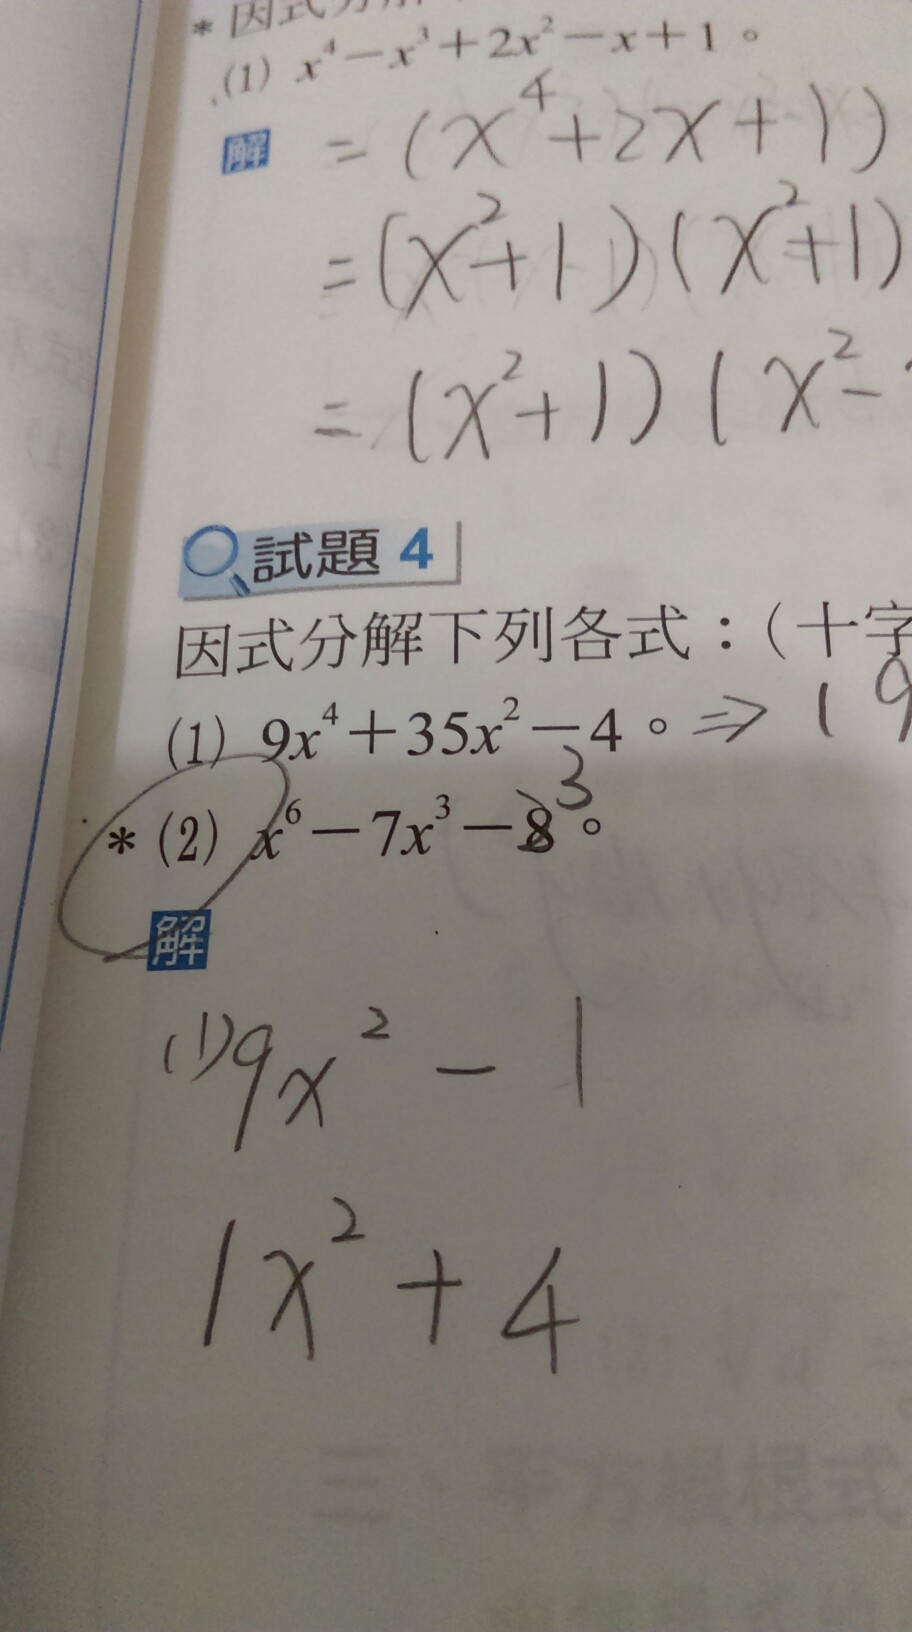 * 因式分解
(1) x⁴－x³＋2x²－x＋1。
解 = (x⁴+2x+1)
= (x²+1)(x²+1)
= (x²+1)(x²-
試題 4
因式分解下列各式：(十字
(1) 9x⁴＋35x²－4。⇒ 1 9
* (2) x⁶－7x³－8。
解
(1) 9x² - 1
1x² + 4